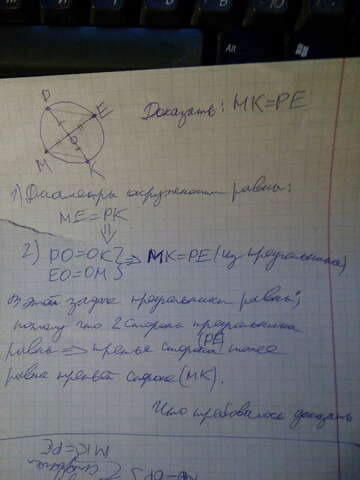 P
E
O
M
K
Доказать: MK=PE
1) Диаметры окружности равны:
ME=PK
⇓
2) PO=OK } ⇒ MK=PE (из треугольника)
EO=OM
В этой задаче треугольники равны,
потому что 2 стороны треугольника
равны ⇒ третья сторона (PE) тоже
равна третьей стороне (MK).
Что требовалось доказать
MK=PE
Alt